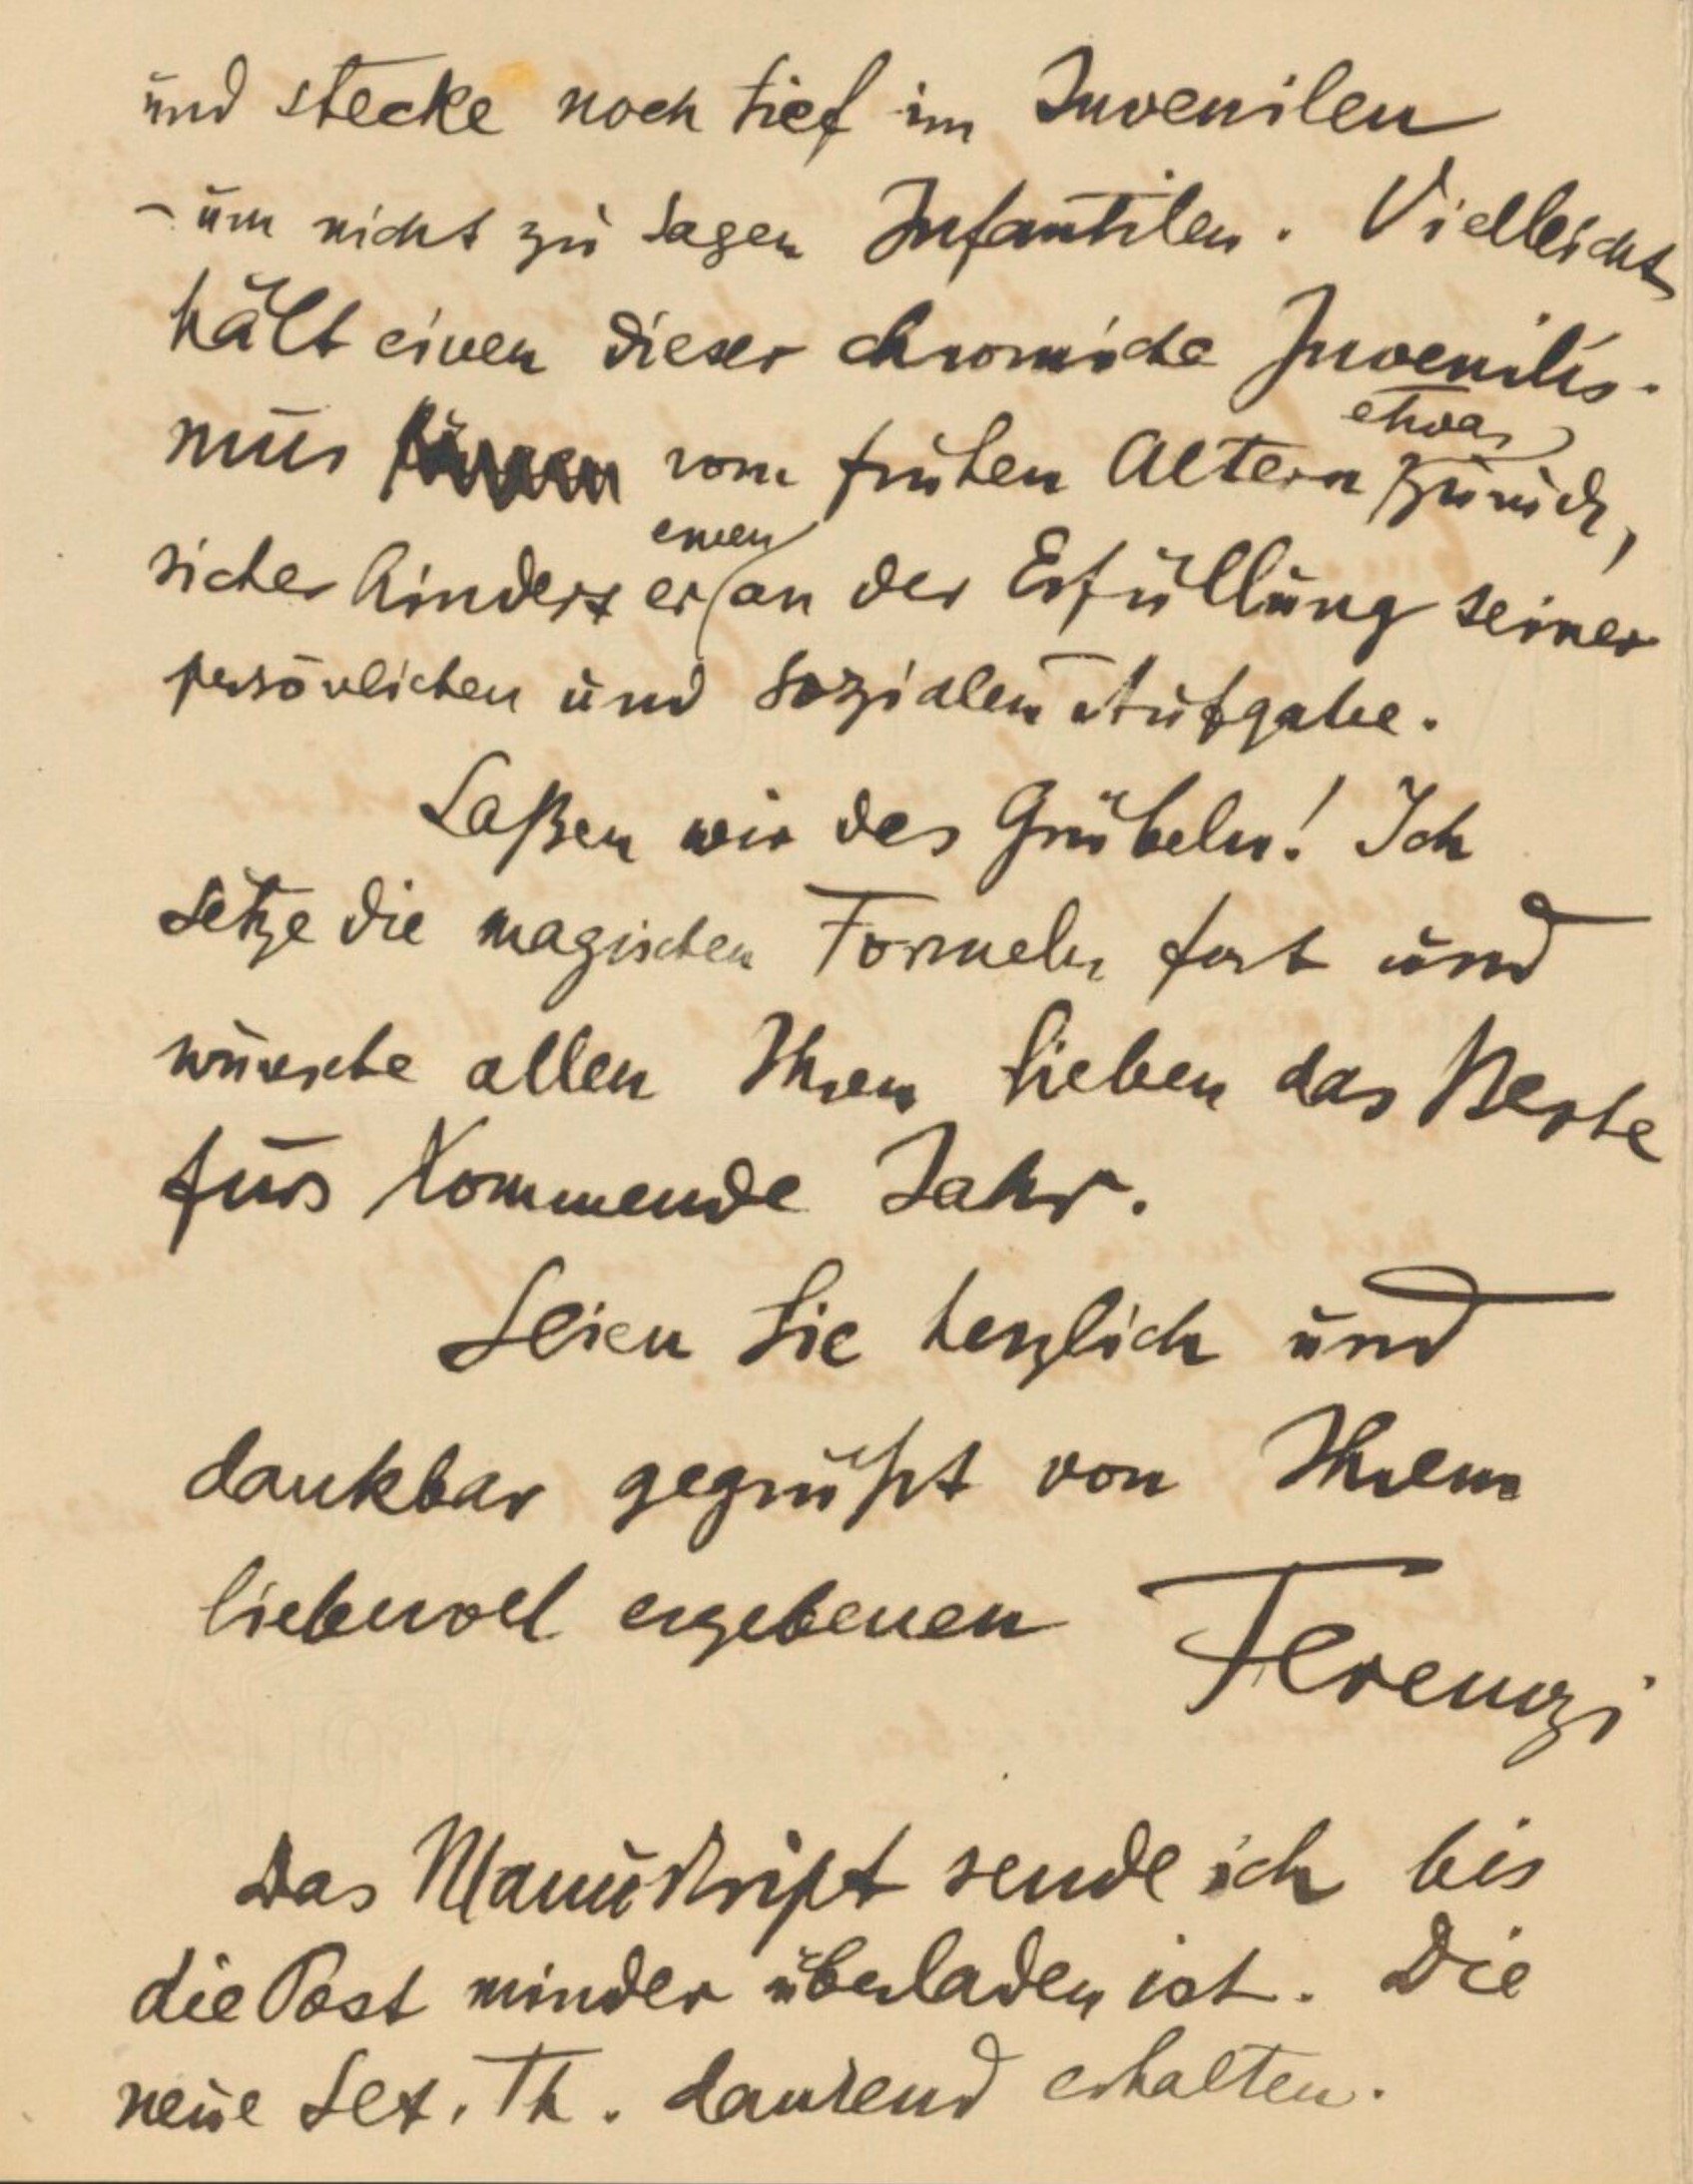 und stecke noch tief im Juvenilen
– um nicht zu sagen Infantilen. Vielleicht
hält einen dieser chronische Juvenilis-
mus vom frühen Altern etwas zurück,
sicher hindert er einen an der Erfüllung seiner
persönlichen und sozialen Aufgabe.
Laßen wir das Grübeln! Ich
setze die magischen Formeln fort und
wünsche allen Ihren Lieben das Beste
fürs kommende Jahr.
Seien Sie herzlich und
dankbar gegrüßt von Ihrem
liebevoll ergebenen Ferenczi
Das Manuskript sende ich bis
die Post minder überladen ist. Die
neue Sex. Th. dankend erhalten.